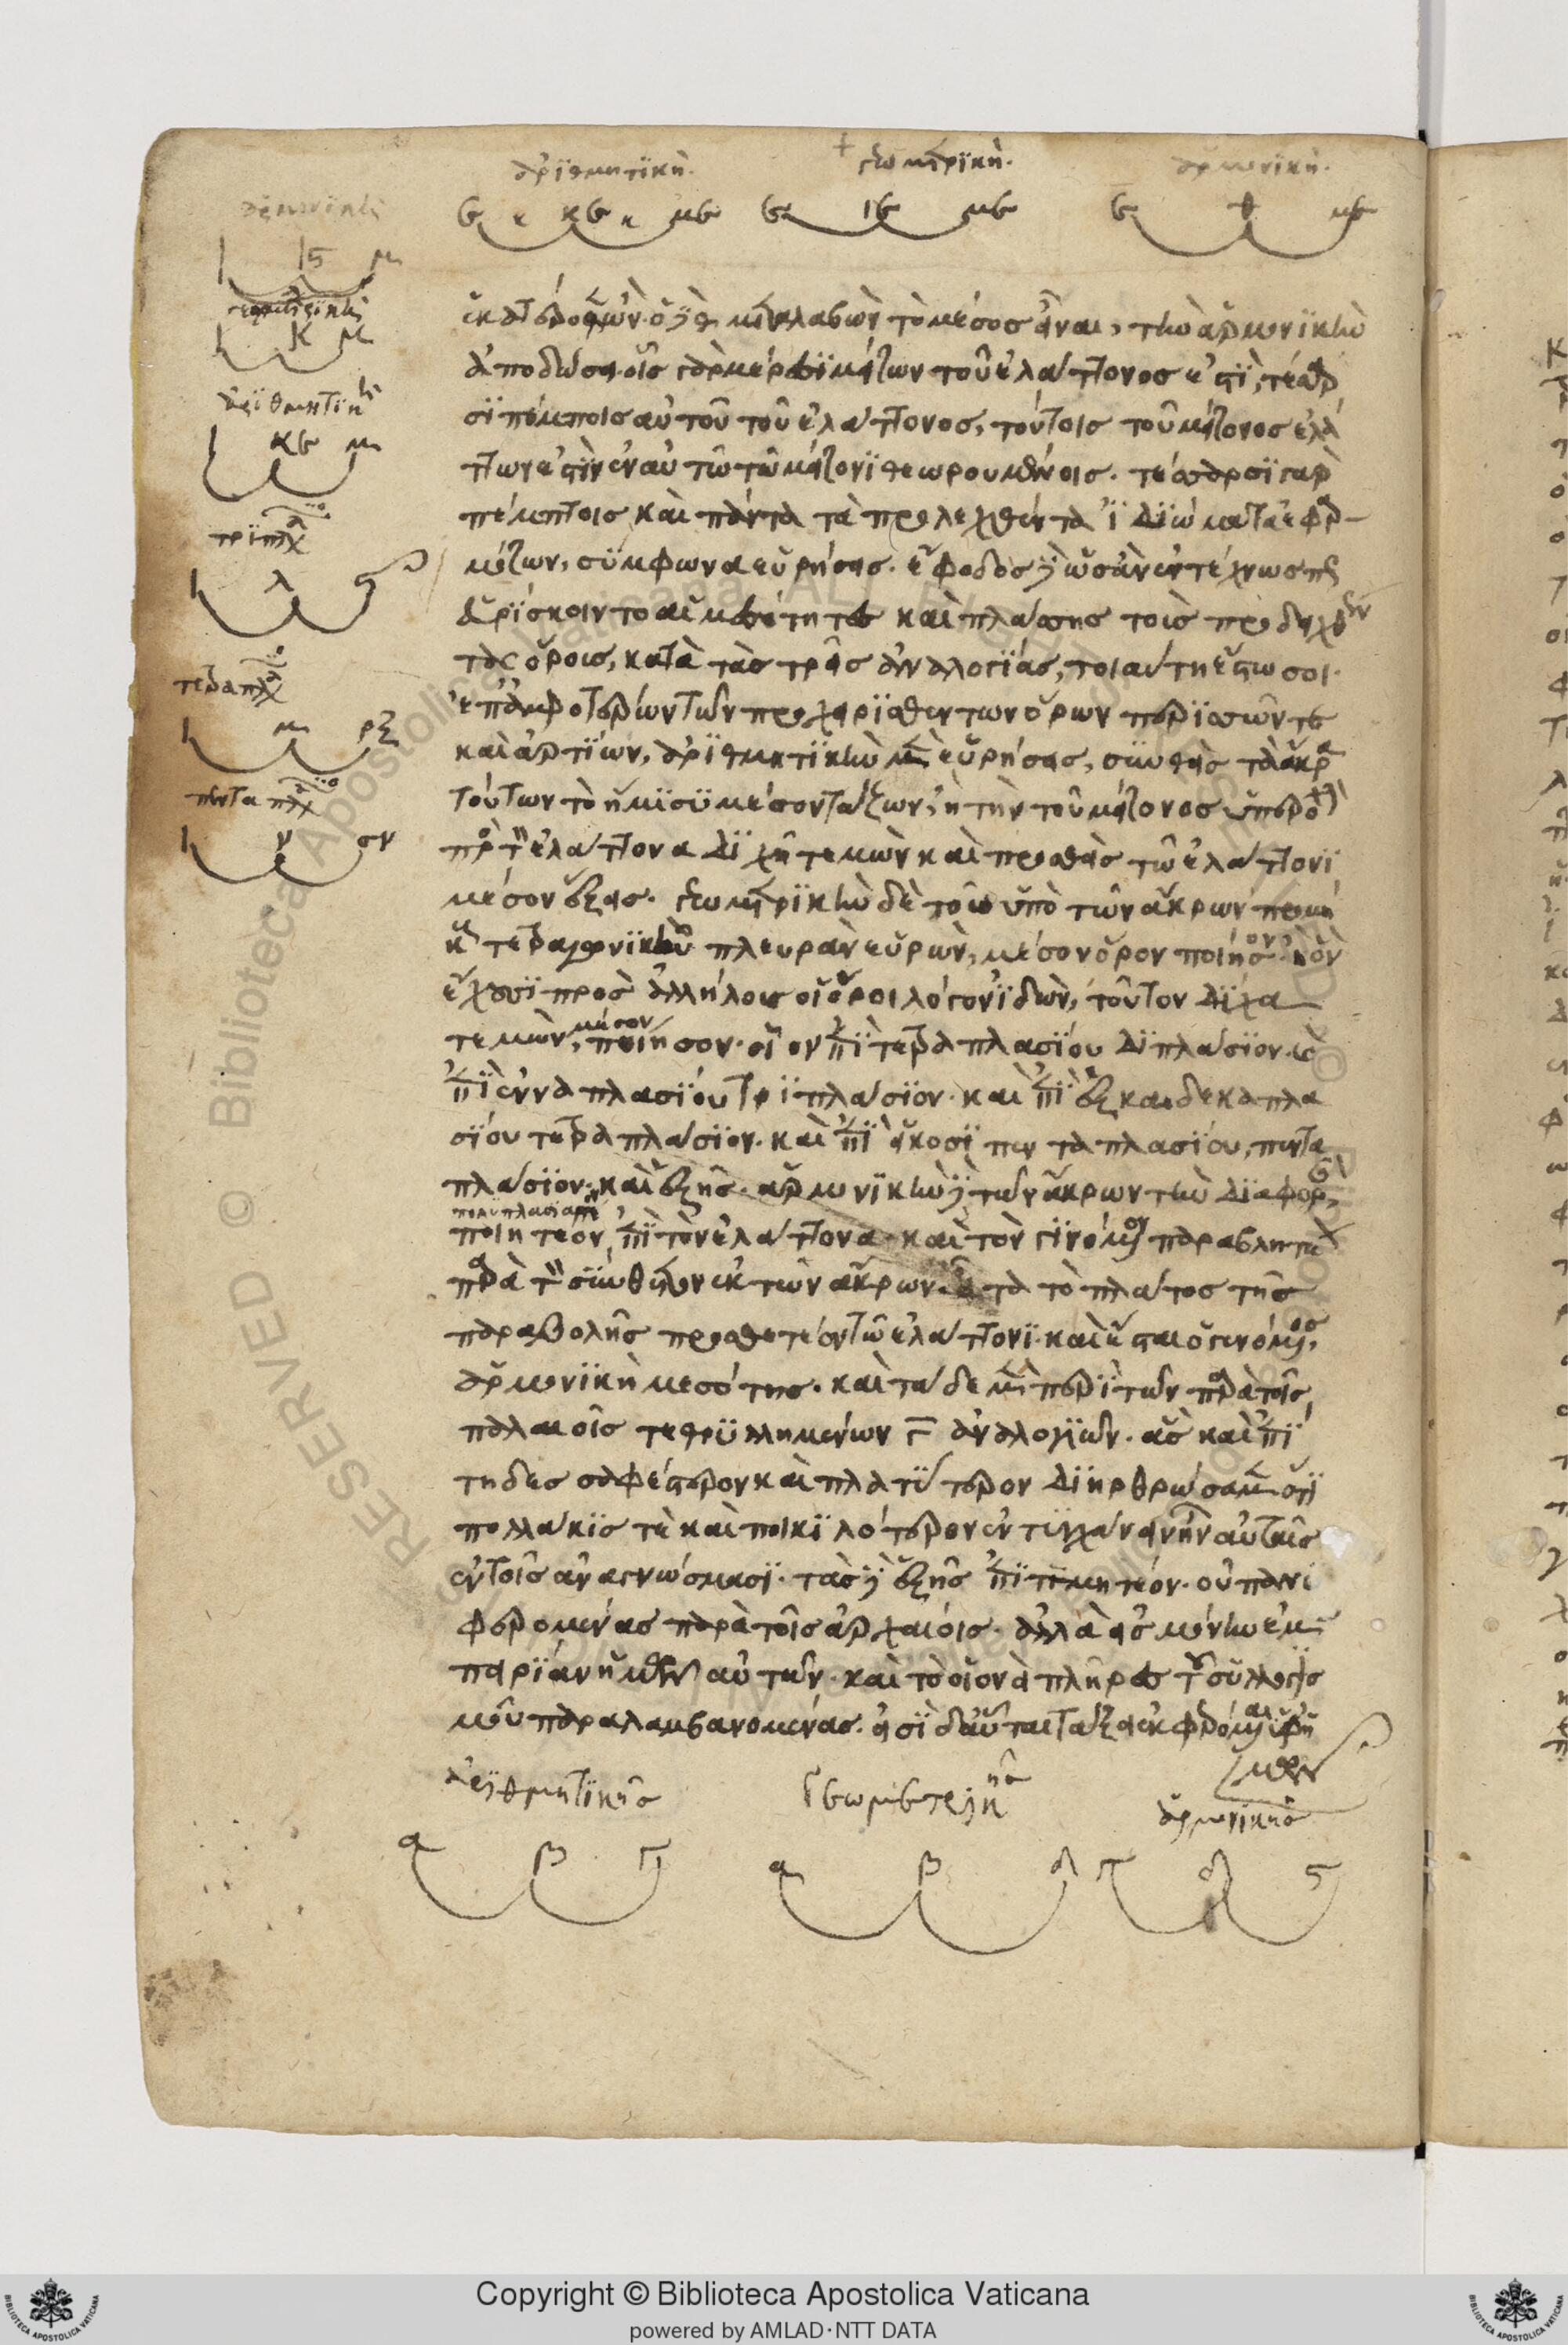 ἀριθμητικὴ. γεωμετρικὴ. ἁρμονικὴ.
ε κ κε κ με ε ιε με ε θ με
ἁρμονικὴ
ι ις μ
γεωμετρικὴ
ι κ μ
ἀριθμητικὴ
ι κε μ
τριπλάσιο
ι λ ϟ
τετραπλάσιο
ι μ ρξ
πενταπλάσιο
ι ν σν
ἑκατέρωθεν· ὁ δὲ θ μεταλαβὼν τὸ μέσος εἶναι, τὴν ἁρμονικὴν
ἀποδώσει· οἷς γὰρ μέρεσι μείζων τοῦ ἐλάττονος ἐστὶ, τέτρα
σι πέμπτοις αὐτοῦ τοῦ ἐλάττονος, τούτοις τοῦ μείζονος ἐλά
ττων ἐστὶν ἐν αὐτῶ τῶ μείζονι θεωρουμένοις. τέτρασι γὰρ
πέμπτοις καὶ πάντα τὰ προλεχθέντα ἰδιώματα ἐφαρ
μόζων, σύμφωνα εὑρήσεις. ἔφοδος δὲ ὡσὰν ἐντέχνως περι
ευρίσκοιντο αἱ μεσότητες καὶ πλάσσης τοῖς προδειχθεν
τας ὅροις, κατὰ τὰς τρεῖς ἀναλογίας, τοιαύτη ἔστω σοι.
ἐπ' ἀμφοτέρων τῶν προχειρισθέντων ὅρων περισσῶν τε
καὶ ἀρτίων, ἀριθμητικὴν μὲν εὑρήσεις, συνθεὶς τὰ ἄκρα
τούτων τὸ ἥμισυ μέσον τάξων, ἢ τὴν τοῦ μείζονος ὑπεροχὴν
πρὸς τὸν ἐλάττονα διχῆ τεμὼν καὶ προσθεὶς τῶ ἐλάττονι
μέσον ἕξεις. γεωμετρικὴν δὲ τοῦ ὑπὸ τῶν ἄκρων περιει
κ τετραγωνικὴν πλευρὰν εὑρὼν, μέσον ὅρον ποίησον· ἢ ὃν
ἔχουσι πρὸς ἀλλήλους οἱ ὅροι λόγον ἰδὼν, τοῦτον δίχα
τεμὼν, μέσον ποίησον· οἷον ἐπὶ τετραπλασίου διπλάσιον·
ἐπὶ ἐνναπλασίου τριπλάσιον· καὶ ἐπὶ ἑξκαιδεκαπλα
σίου τετραπλάσιον· καὶ ἐπὶ εἰκοσιπενταπλασίου, πεντα
πλάσιον· καὶ ἑξῆς. ἁρμονικὴν δὲ τῶν ἄκρων τὴν διαφορὰν,
πολυπλασιαστ
ποιητέον, ἐπὶ τὸν ἐλάττονα· καὶ τὸν γινόμενον παραβλητέον
παρὰ τὸν σύνθετον ἐκ τῶν ἄκρων· εἶτα τὸ πλάτος τῆς
παραβολῆς προσθετέον τῶ ἐλάττονι. καὶ ἔσται ὁ γενόμενος,
ἁρμονικὴ μεσότης. καὶ τάδε μὲν περὶ τῶν παρὰ τοῖς
παλαιοῖς τεθρυλλημένων γ ἀναλογιῶν. ἃς καὶ ἐπί
τηδες σαφέστερον καὶ πλατύτερον διηρθρώσαμεν ὅτι
πολλάκις τὲ καὶ ποικιλότερον ἐντυγχάνειν ἦν αὐταῖς
ἐν τοῖς ἀναγνώσμασι. τὰς δὲ ἑξῆς ἐπιτμητέον· οὐ πάνυ
φερομένας παρὰ τοῖς ἀρχαίοις. ἀλλὰ εἰς μόνην ἐμ
πειρίαν ἡμῶν αὐτῶν. καὶ τὸ οἷονεὶ πλῆρες τοῦ συλλογισ
μοῦ παραλαμβανομένας. εἰσὶ δ' αὗται τάξει ἐκφερόμεναι ὑφ' ἡ
μῶν
ἀριθμητικῆς γεωμετρικῆς ἁρμονικῆς
α β γ α β δ γ δ ς